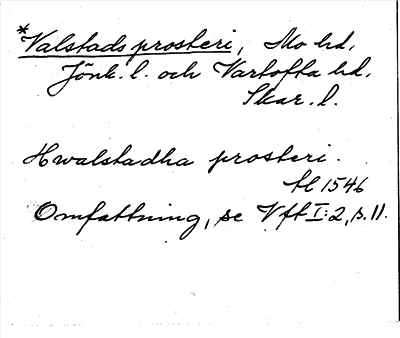 *Valstads prosteri, Mo hd,
Jönk. l. och Vartofta hd,
Skar. l.
Hwalstadha prosteri.
Hl 1546
Omfattning, se Vft I:2, s. 11.